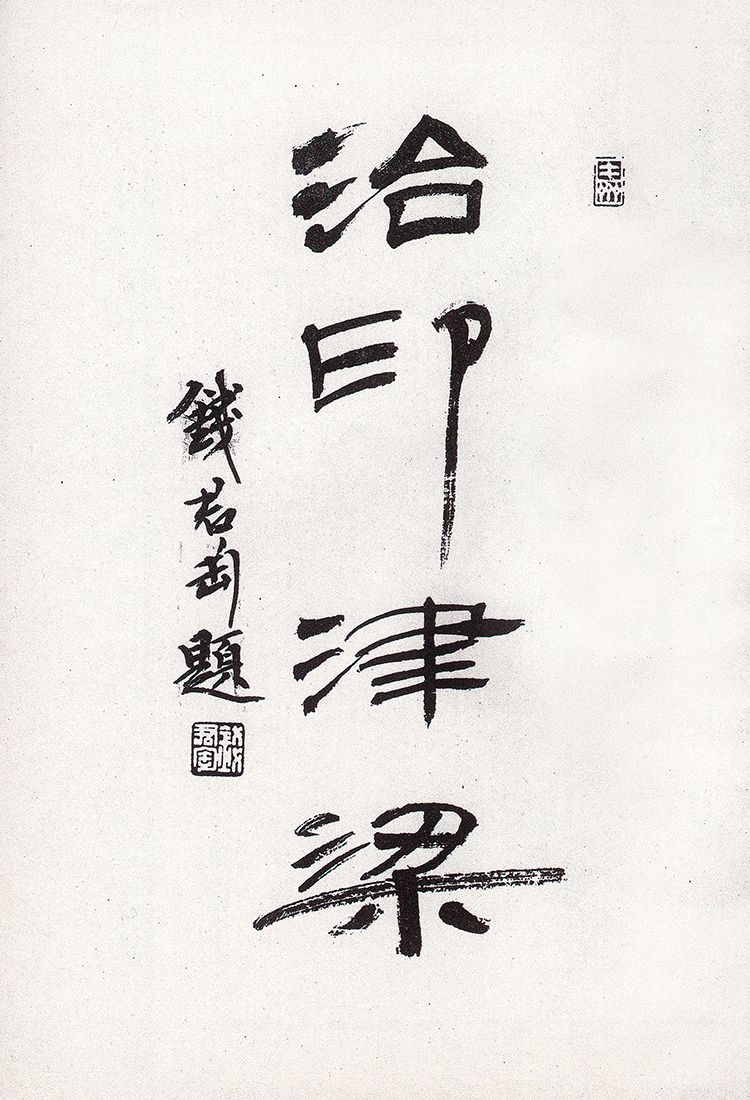 治印津梁
錢君匋題